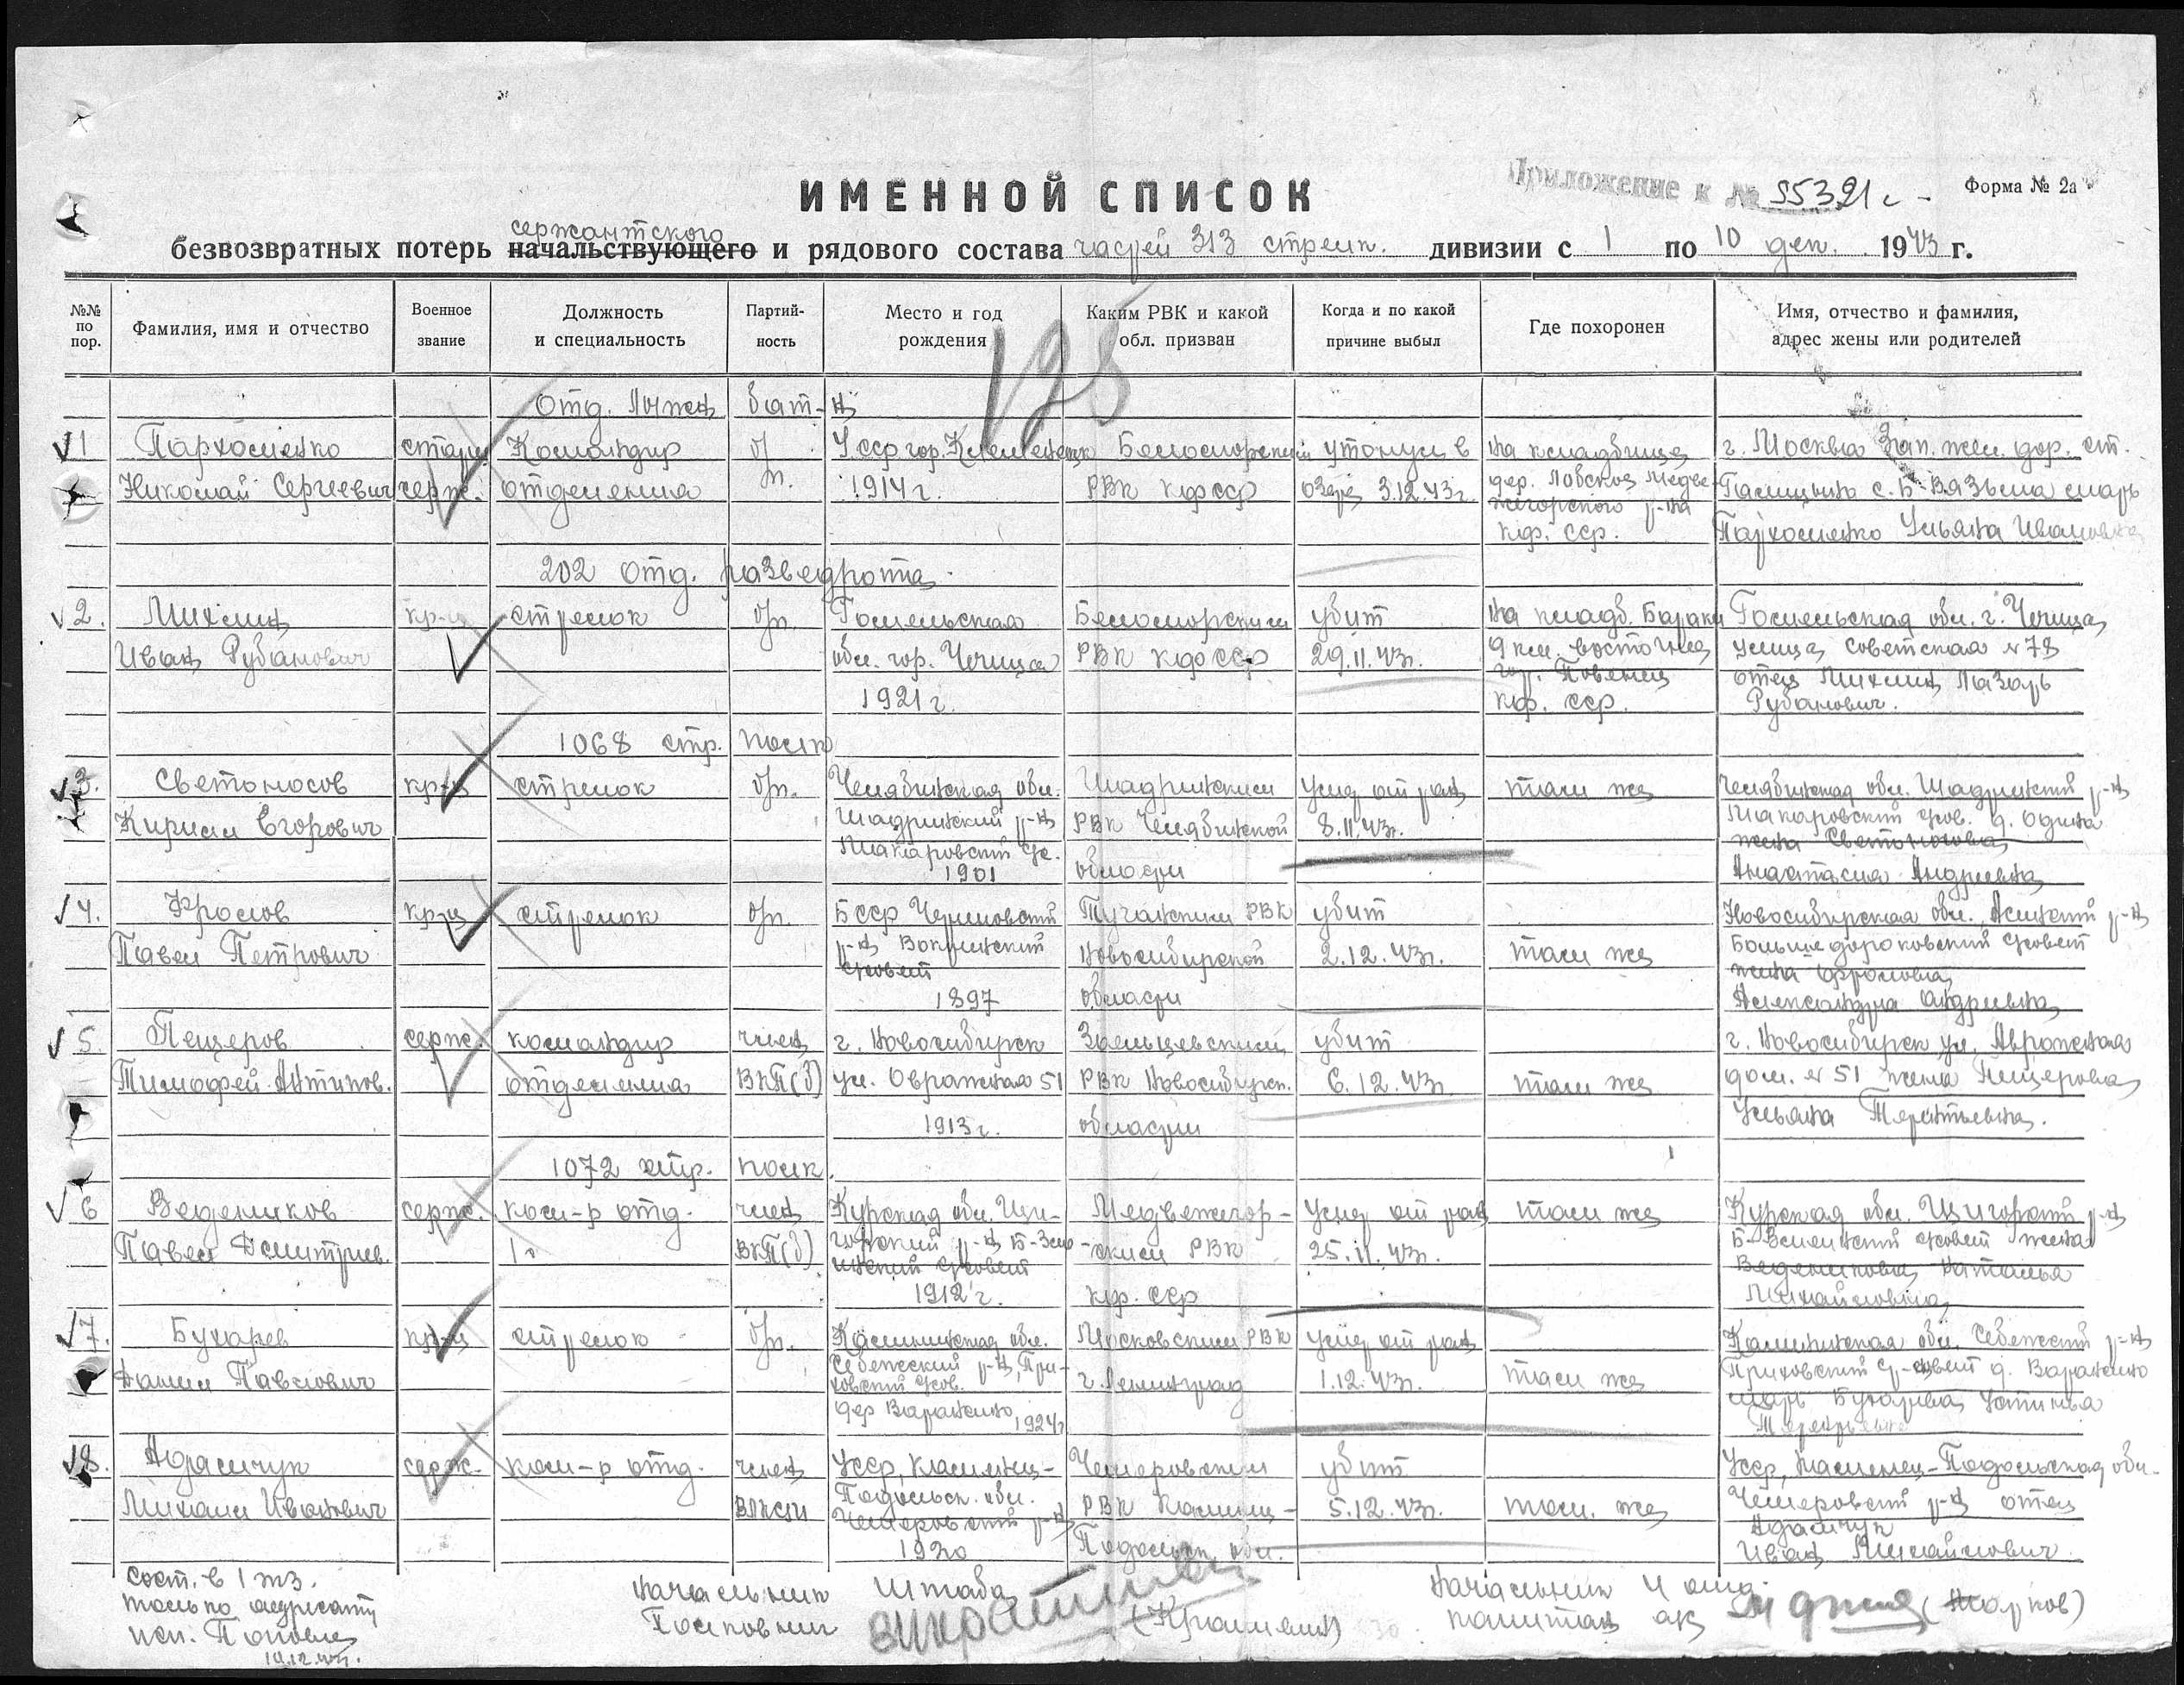 Приложение к № 55321с
Форма № 2а
ИМЕННОЙ СПИСОК
сержантского
безвозвратных потерь начальствующего и рядового состава частей 313 стрелк. дивизии с 1 по 10 дек. 1943 г.
№№ по пор. Фамилия, имя и отчество Военное звание Должность и специальность Партийность Место и год рождения Каким РВК и какой обл. призван Когда и по какой причине выбыл Где похоронен Имя, отчество и фамилия, адрес жены или родителей
125
отд. лыжн бат-н
1 Пархоменко старш Командир б/ У.сср гор. Кременчук Беломорским утонул в на кладбище г. Москва Зап. жел. дор. ст.
Николай Сергеевич серж. отделения п. 1914 г. РВК кфсср озере 3.12.43г. дер. Ловская Медве- Голицыно с. Б-Вязьма мать
жегорского р-на
кф. сср. Пархоменко Ульяна Ивановна
202 отд. разведрота
2. Михлин кр-ц стрелок б/п. Гомельская Беломорским убит на кладб. Бараки Гомельская обл. г. Чечица
Иван Рубанович обл. гор. Чечица РВК кфсср 29.11.43г. 9 клм. восточнее улица Советская № 78
1921 г. гор. Повенец отец Михлин Лазарь
кф. сср. Рубанович.
1068 стр. полк
3. Светоносов кр-ц стрелок б/п. Челябинская обл. Шадринским умер от ран там же Челябинская обл. Шадринский р-н
Кирилл Егорович Шадринский р-н РВК Челябинской 8.11.43г. Макаровский сов. д. Одина
Макаровский с/с. жена Светоносова
1901 области Анастасия Андреевна
4. Фролов кр-ц стрелок б/п. Бсср РВК убит Новосибирская обл. р-н
Павел Петрович р-н Новосибирской 2.12.43г. там же совет
совет жена Фролова
1897 области Александра Андреевна
5. Пещеров серж. командир член г. Новосибирск Заельцевским убит г. Новосибирск ул. Авражная
Тимофей Антипов. отделения ВКП(б) ул. Овражная 51 РВК Новосибирск. 6.12.43г. там же дом. № 51 жена Пещерова
1913 г. области Ульяна Терентьевна.
1072 стр. полк.
6 Ведеников серж. ком-р отд. член Курская обл. Щи- Медвежегор- умер от ран там же Курская обл. Щигорский р-н
Павел Дмитриев. ВКП(б) горский р-н ским РВК 25.11.43г. совет жена
совет Веденикова Наталья
1912 г. кф. сср Михайловна
7. Бухарев кр-ц стрелок б/п. Калининская обл. Московским РВК умер от ран Калининская обл. Себежский р-н
Данил Павлович Себежский р-н, При- г. Ленинград 1.12.43г. там же Приховский с-совет д. Варанкино
ховский сов. мать Бухарева Устинья
дер Варанкино, 1924г
8. Адамчук серж. ком-р отд. член Усср, Каменец- Чемеровским убит Усср, Каменец-Подольская обл.
Михаил Иванович ВЛКСМ Подольск. обл. РВК Каменец- 5.12.43г. там же Чемеровский р-н отец
Чемеровский р-н Адамчук
1920 Подольск. обл. Иван Михайлович
сост. в 1 экз.
только адресату
исп. Попова
19.12.43г.
Начальник Штаба
Полковник
Начальник 4 отд.
капитан а/с (Жарков)